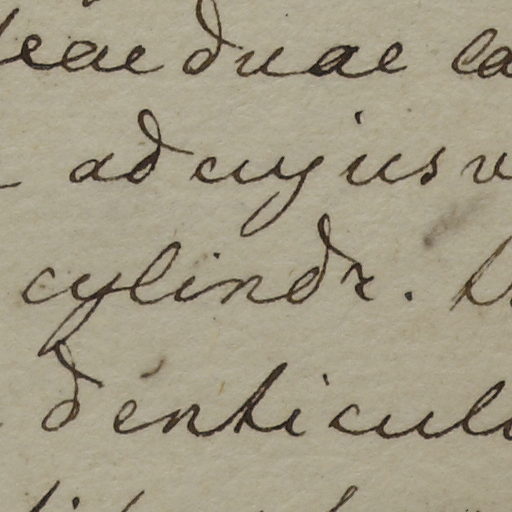 eae duae la
ad cujus v
cylindr.
denticul